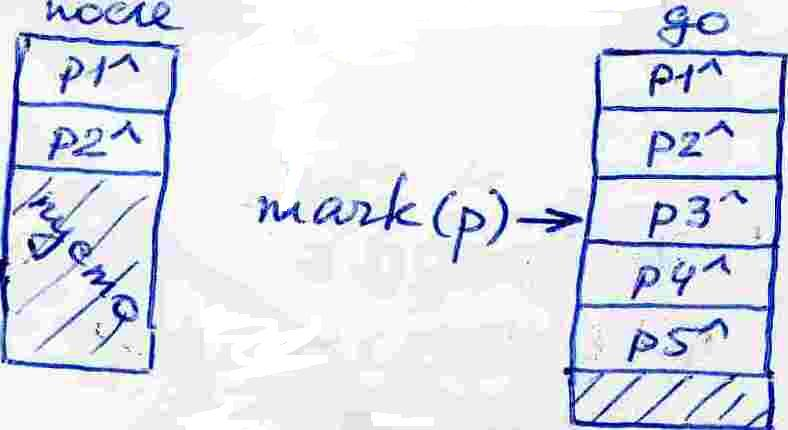 после
p1^
p2^
пусто
mark(p)→
до
p1^
p2^
p3^
p4^
p5^